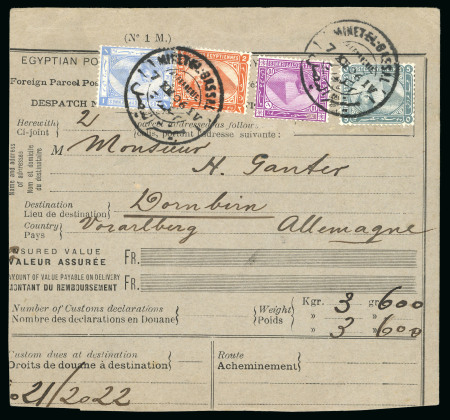 (N° 1 M.)
EGYPTIAN PO
Foreign Parcel Pos
DESPATCH N
MINET-EL-BASSAL
MINET-EL-BASSAL
Herewith 2 parcels addressed as follow:
Ci-joint colis, portant l'adresse suivante:
Name and address of addressee
Nom et domicile de destinataire
M Monsieur
H. Ganter
Destination
Lieu de destination Dornbirn
Country
Pays Vorarlberg Allemagne
SSURED VALUE FR.
VALEUR ASSURÉE
AMOUNT OF VALUE PAYABLE ON DELIVERY FR.
MONTANT DU REMBOURSEMENT
Number of Customs declarations
Nombre des déclarations en Douane
Weight
Poids
Kgr. 3 gr. 600
» 3 » 600
Custom dues at destination
Droits de douane à destination
Route
Acheminement
21/2022